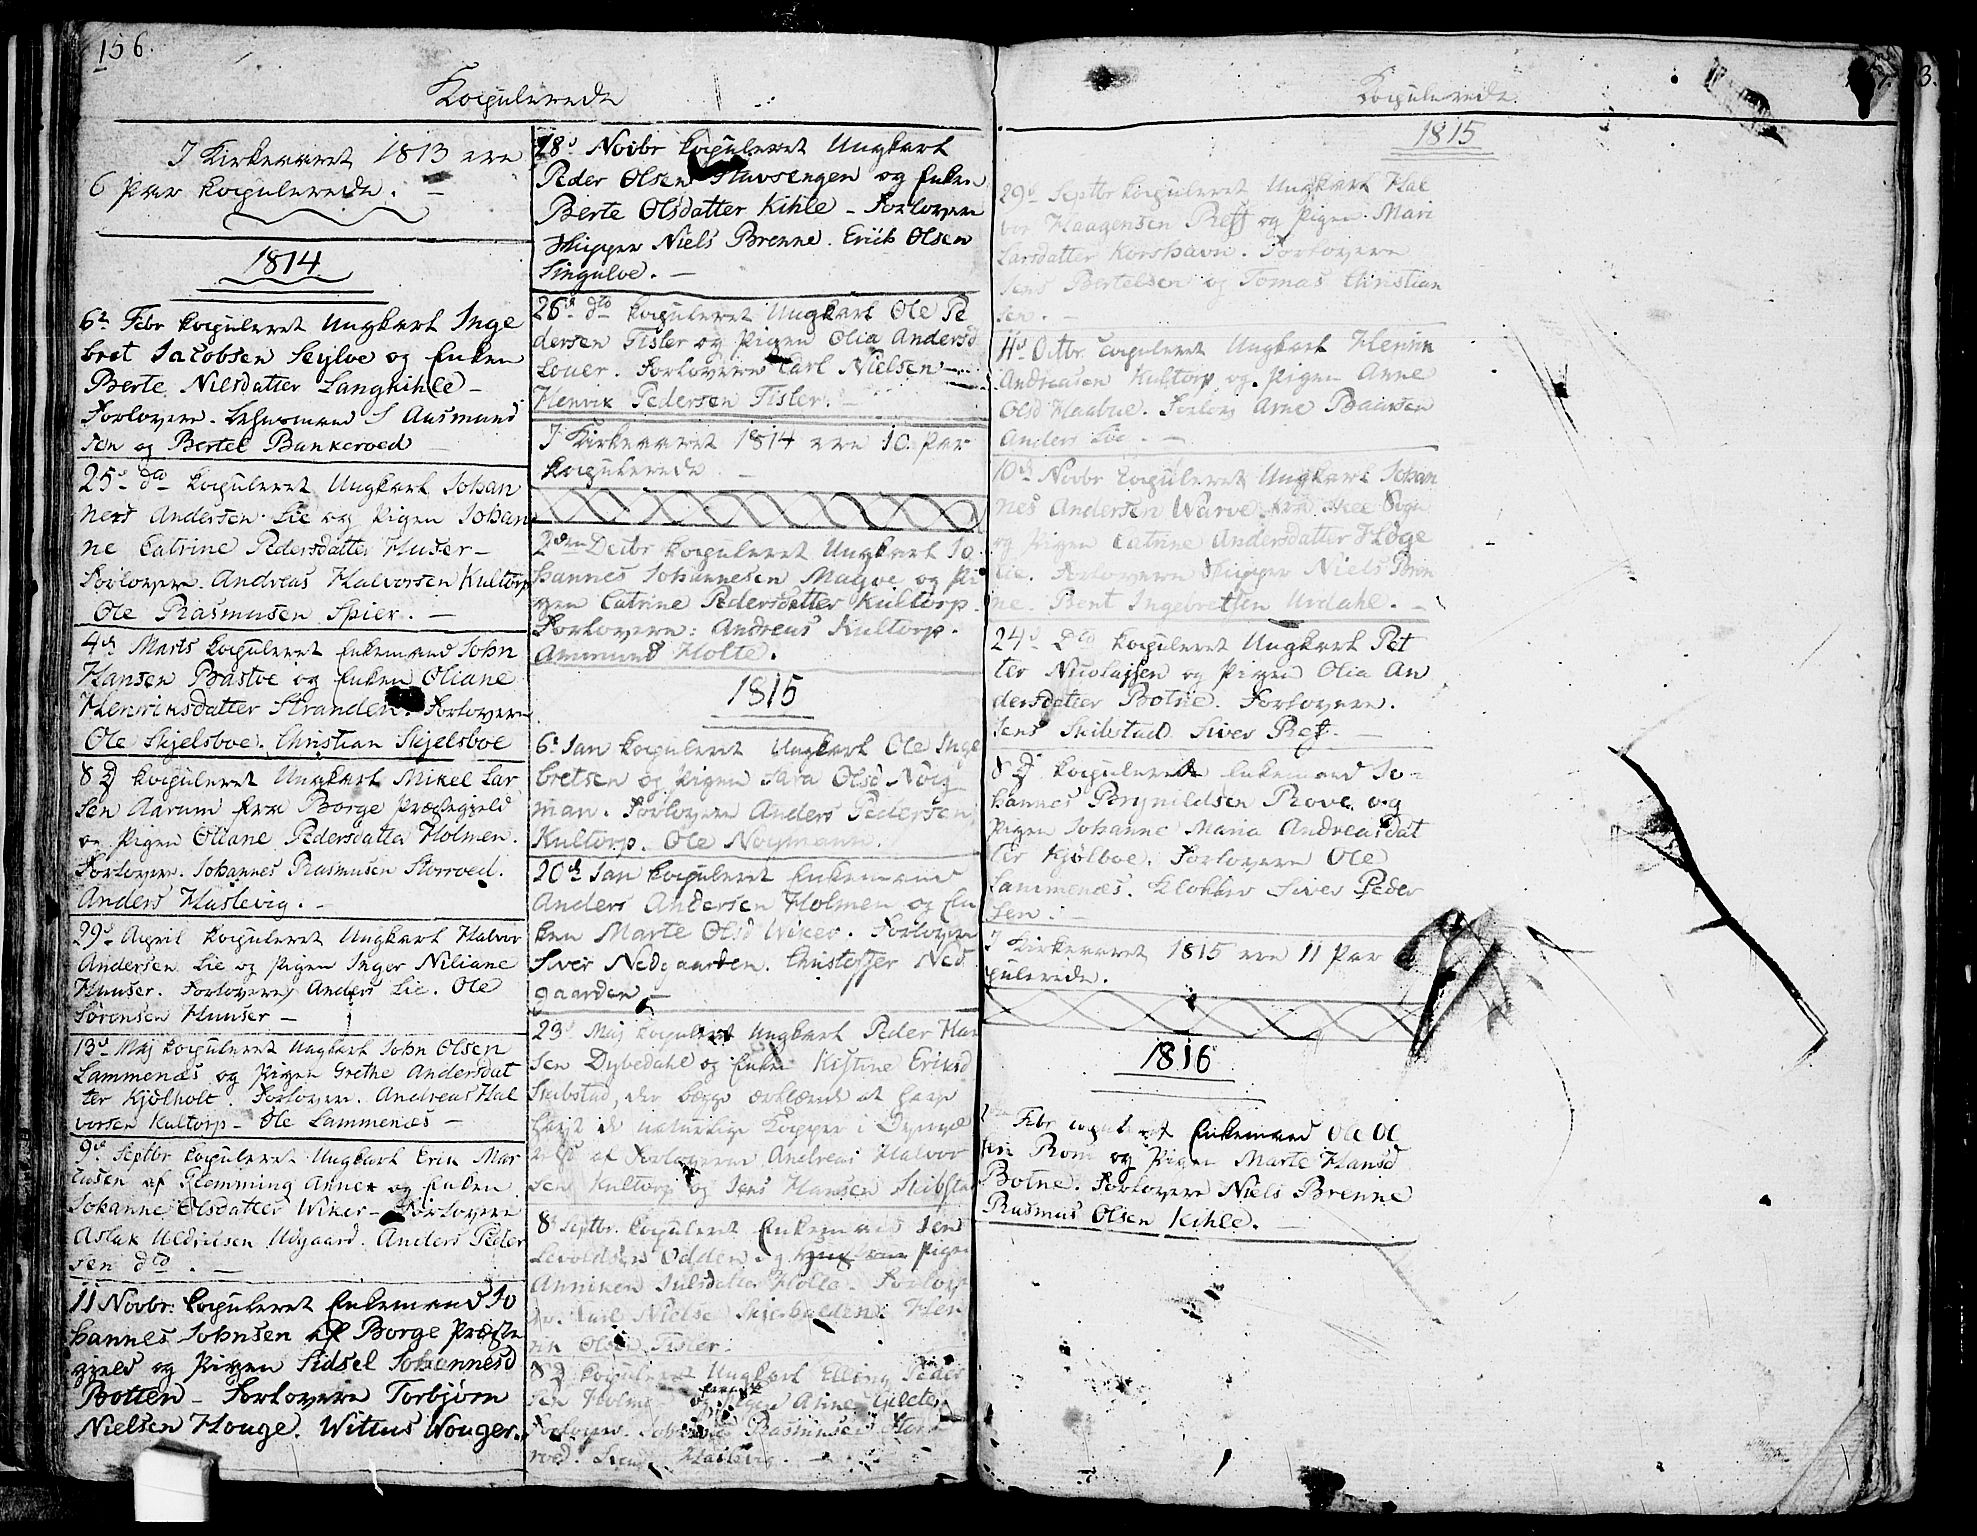 156.
Copulerede
I Kirkeaaret 1813 ere
6 par Copulerede. —
1814
6te Febr copuleret Ungkarl Inge
bret Jacobsen Seyloe og Enken
Berte Nilsdatter Langkihle —
Forlovere. Lehnsmand S Aasmund
sen og Bertel Bankeroed —
25de dto copuleret Ungkarl Johan
nes Andersen Lie og Pigen Johan
ne Catrine Pedersdatter Huser —
Forlovere. Andreas Halvorsen Kultorp
Ole Rasmusen Spier. —
4de Marts copuleret Enkemand John
Hansen Bastoe og Enken Oliane
Henriksdatter Stranden. Forlovere
Ole Skjelsboe. Christian Skjelsboe
8 D copuleret Ungkarl Mikel Lar
sen Aarum fra Borge Præstegjeld
og Pigen Oliane Pedersdatter Holmen.
Forlovere. Johannes Rasmusen Storroed.
Anders Haslevig. —
29de April copuleret Ungkarl Halvor
Andersen Lie og Pigen Inger Niliane
Huuser. Forlovere Anders Lie. Ole
Sørensen Huuser —
13de Maj copuleret Ungkarl John Olsen
Lammenæs og Pigen Grethe Andersdat
ter Kjølholt. Forlovere. Andreas Hal
vorsen Kultorp — Ole Lammenæs —
9de Septbr copuleret Ungkarl Erik Mar
cusen af Glemming Annex og Enken
Johanne Olsdatter Wiker — Forlovere
Aslak Uldriksen Udgaard. Anders Peder
sen dto. —
11 Novbr. copuleret Enkemand Jo
hannes Johnsen af Borge Præste
gjeld og Pigen Sidsel Johannesd
Botten — Forlovere Torbjørn
Nielsen Houge. Wittus Wouger.
18de Novbr copuleret Ungkarl
Peder Olsen Stuvsengen og Enken
Berte Olsdatter Kihle — Forlovere
Skipper Niels Brenne. Erich Olsen
Singuloe. —
26de dto copuleret Ungkarl Ole Pe
dersen Tisler og Pigen Olia Andersd
Louer. Forlovere Carl Nielsen —
Henrik Pedersen Tisler. —
I Kirkeaaret 1814 ere 10 Par
copulerede —
2den Decbr copuleret Ungkarl Jo
hannes Johannesen Mageroe og Pi
gen Catrine Pedersdatter Kultorp.
Forlovere: Andreas Kultorp.
Ammund Holte.
1815
6te Jan copuleret Ungkarl Ole Inge
bretsen og Pigen Sara Olsd Nøig
man. Forlovere Anders Pedersen
Kultorp. Ole Noigmann.
20de Jan copuleret Enkemand
Anders Andersen Holmen og En
ken Marte Olsd Wiker. Forlovere
Siver Nedgaarden. Christoffer Ned
gaarden —
23de Maj copuleret Ungkarl Peder Han
sen Dybedahl og Enken Kistine Eriksd
Skibstad, der begge erklærede at have
havt de naturlige Kopper i
af Forloverne Andreas Halvor
sen Kultorp og Jens Hansen Skibstad
8de Septbr. copuleret Enkemand Jens
Leuoldsen Odden og Pigen
Anniken Juulsdatter Holte. Forlov
ere. Karl Nielsen Skjebalden. Hen
rik Olsen Tisler.
8 D copuleret Ungkarl Elling Peder
sen Holme og Pigen Anne
Forlovere. Johannes Rasmusen Stor
roed. Haslevig. —
Copulerede.
3.
1815
29de Septbr copuleret Ungkarl Hal
vor Haagensen Reff og Pigen Mari
Larsdatter Korshavn. Forlovere
Jens Bertelsen og Tomas Christian
sen. —
11de Octbr copuleret Ungkarl Henrik
Andreasen Kultorp og Pigen Anne
Olsd Haabue. Forlov Arne Baursen
Anders Lie. —
10de Novbr copuleret Ungkarl Johan
nes Andersen Warve fra Skee Sogn
og Pigen Catrine Andersdatter Høge
lie. Forlovere Skipper Niels Bren
ne. Bent Ingebretsen Urdahl. —
24de dto copuleret Ungkarl Pet
ter Nicolajsen og Pigen Olia An
dersdatter Botne. Forlovere.
Jens Skibstad. Siver Ref. —
8 D copuleret Enkemand Jo
hannes Brynildsen Rove og
Pigen Johanne Maria Andreasdat
ter Kjølboe. Forlovere Ole
Lammenæs. Klokker Siver Peder
sen. —
I Kirkeaaret 1815 ere 11 Par
pulerede.
1816
Febr copuleret Enkemand Ole Ol
sen Rom og Pigen Marte Hansd
Botne. Forlovere Niels Brenne
Rasmus Olsen Kihle. —